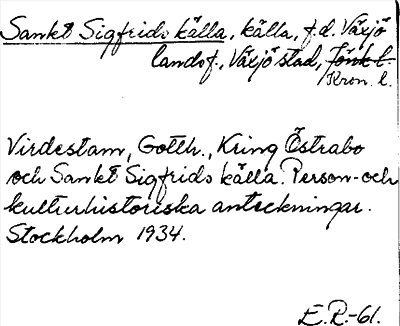 Sankt Sigfrids källa, källa, f.d. Växjö
landsf., Växjö stad, Jönk. l.
Kron. l.
Virdestam, Gotth., Kring Östrabo
och Sankt Sigfrids källa. Person- och
kulturhistoriska anteckningar.
Stockholm 1934.
E.R.-61.